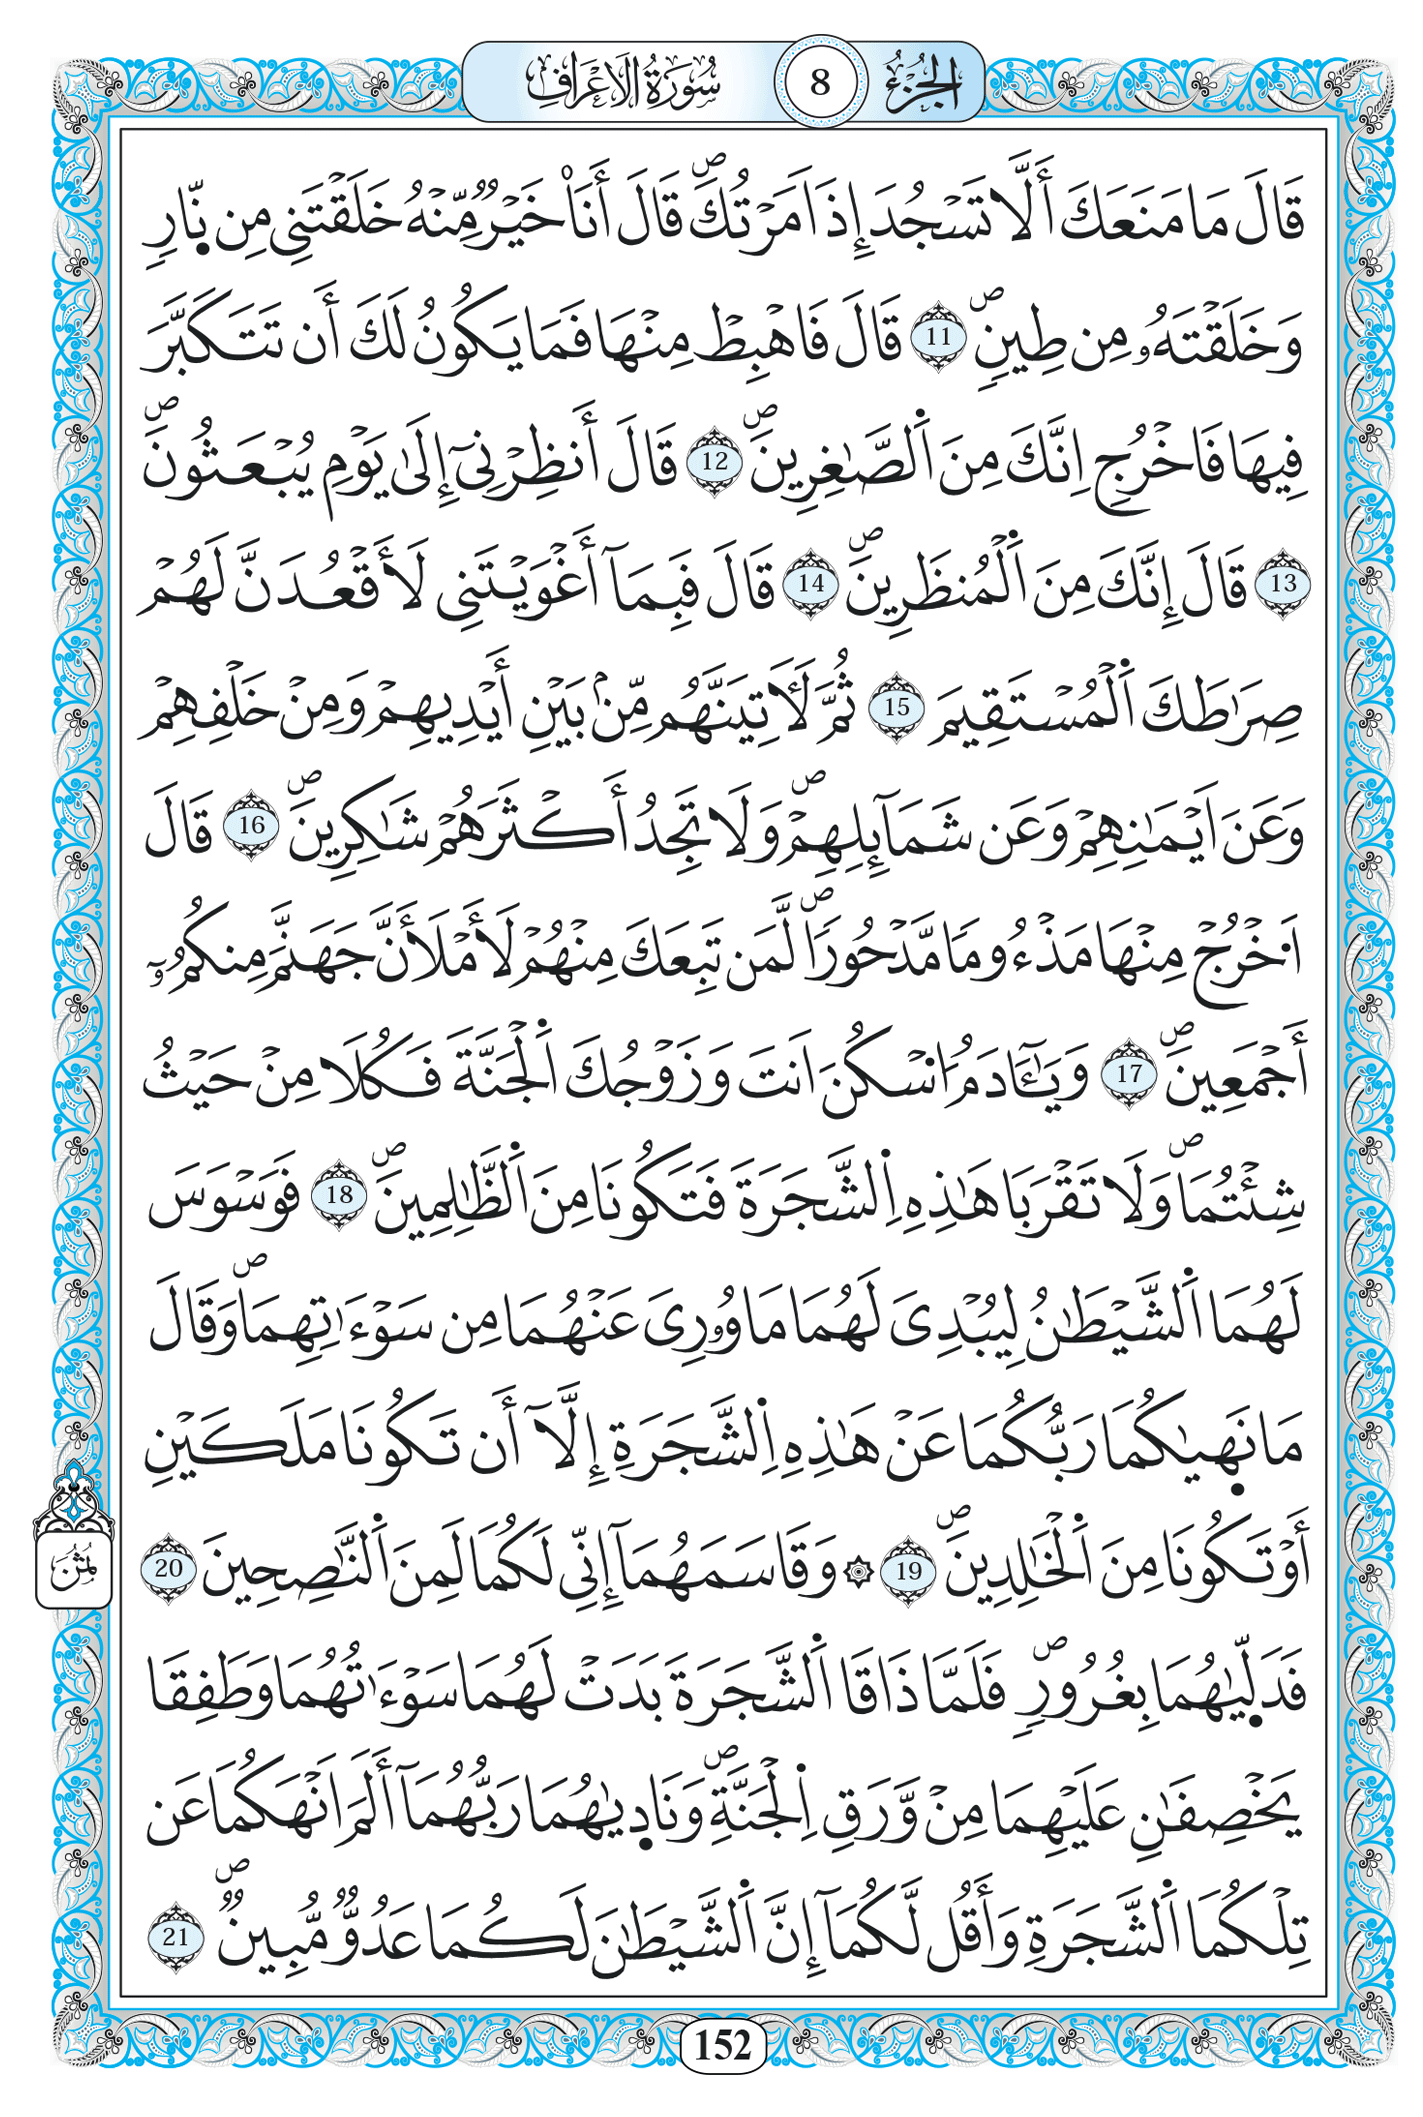 الجُزْءُ 8 سُورَةُ الَاعْرَافِ
قَالَ مَا مَنَعَكَ أَلَّا تَسْجُدَ إِذَ اَمَرْتُكَۖ قَالَ أَنَا۠ خَيْرٌ مِّنْهُ خَلَقْتَنِی مِن نّ۪ارٖ
وَخَلَقْتَهُۥ مِن طِينٖۖ 11 قَالَ فَاهْبِطْ مِنْهَا فَمَا يَكُونُ لَكَ أَن تَتَكَبَّرَ
فِيهَا فَاخْرُجِ اِنَّكَ مِنَ اَ۬لصَّٰغِرِينَۖ 12 قَالَ أَنظِرْنِیٓ إِلَیٰ يَوْمِ يُبْعَثُونَۖ
13 قَالَ إِنَّكَ مِنَ اَ۬لْمُنظَرِينَۖ 14 قَالَ فَبِمَآ أَغْوَيْتَنِی لَأَقْعُدَنَّ لَهُمْ
صِرَٰطَكَ اَ۬لْمُسْتَقِيمَ 15 ثُمَّ لَأٓتِيَنَّهُم مِّنۢ بَيْنِ أَيْدِيهِمْ وَمِنْ خَلْفِهِمْ
وَعَنَ اَيْمَٰنِهِمْ وَعَن شَمَآئِلِهِمْۖ وَلَا تَجِدُ أَكْثَرَهُمْ شَٰكِرِينَۖ 16 قَالَ
اَ۟خْرُجْ مِنْهَا مَذْءُوماٗ مَّدْحُوراٗۖ لَّمَن تَبِعَكَ مِنْهُمْ لَأَمْلَأَنَّ جَهَنَّمَ مِنكُمُۥٓ
أَجْمَعِينَۖ 17 وَيَٰٓـَٔادَمُ اُ۟سْكُنَ اَنتَ وَزَوْجُكَ اَ۬لْجَنَّةَ فَكُلَا مِنْ حَيْثُ
شِئْتُمَاۖ وَلَا تَقْرَبَا هَٰذِهِ اِ۬لشَّجَرَةَ فَتَكُونَا مِنَ اَ۬لظَّٰلِمِينَۖ 18 فَوَسْوَسَ
لَهُمَا اَ۬لشَّيْطَٰنُ لِيُبْدِیَ لَهُمَا مَا وُۥرِیَ عَنْهُمَا مِن سَوْءَٰتِهِمَاۖ وَقَالَ
مَا نَه۪يٰكُمَا رَبُّكُمَا عَنْ هَٰذِهِ اِ۬لشَّجَرَةِ إِلَّآ أَن تَكُونَا مَلَكَيْنِ
أَوْ تَكُونَا مِنَ اَ۬لْخَٰلِدِينَۖ 19 ۞ وَقَاسَمَهُمَآ إِنِّی لَكُمَا لَمِنَ اَ۬لنَّٰصِحِينَ 20
ثُمُن
فَدَلّ۪يٰهُمَا بِغُرُورٖۖ فَلَمَّا ذَاقَا اَ۬لشَّجَرَةَ بَدَتْ لَهُمَا سَوْءَٰتُهُمَا وَطَفِقَا
يَخْصِفَٰنِ عَلَيْهِمَا مِنْ وَّرَقِ اِ۬لْجَنَّةِۖ وَنَاد۪يٰهُمَا رَبُّهُمَآ أَلَمَ اَنْهَكُمَا عَن
تِلْكُمَا اَ۬لشَّجَرَةِ وَأَقُل لَّكُمَآ إِنَّ اَ۬لشَّيْطَٰنَ لَكُمَا عَدُوٌّ مُّبِينٌۖ 21
152